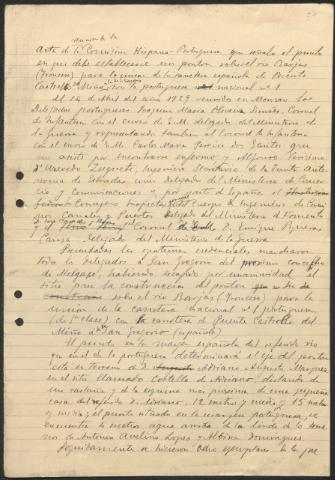 reunion de la
Acta de la Comision Hispano-Portuguesa que señala el punto
en que debe establecerse un ponton sobre el rio Barjas
(Troncoso) para la union de la carretera española de Puente
Castrello Miño con la portuguesa nacional nº 1
El 16 de Abril del año 1929 reunidos en Monçao los
Delegados portugueses Joaquin Maria Oliveira Simões, Coronel
de Infanteria con el curso de E.M. delegado del Ministerio de
la Guerra y representando tambien al Coronel de Infanteria
con el curso de E.M. Carlos Maria Pereira dos Santos que
no asiste por encontrarse enfermo y Alfonso
d'Azevedo Ingeniero Secretario de la Junta Auto-
noma de Estradas como Delegado del Ministerio de Comercio
y Comunicaciones y por parte de España el
Consejero Inspector del Cuerpo de Ingenieros de Cami-
nos Canales y Puertos Delegado del Ministerio de Fomento
y el Coronel de E.M. D. Enrique
Delegado del Ministerio de la Guerra
las oportunas credenciales, marcharon
todos los Delegados a San Gregorio del concejo
de Melgaço, habiendo escogido por unanimidad el
sitio para la construccion del ponton que
sobre el rio Barjas (Troncoso) para la
union de la carretera nacional nº 1 portuguesa
(de 1ª clase) con la carretera de Puente Castrello del
Miño a San Gregorio (española)
El punto en la margen española del referido rio
que en el de la portuguesa determinará el eje del ponton
está en terreno de D. Adriano Augusto Marques
en el sitio llamado de Adriano, distando de
un y de la esquina mas proxima de una pequeña
casa del referido D. Adriano, 12 metros y medio y 15 metros
y medio; el punto situado en la margen portuguesa, se
encuentra metros agua arriba de la linde de los terre-
nos de Antonio Avelino Lopes y Albina Domingues.
Seguidamente se hicieron ocho ejemplares de la que